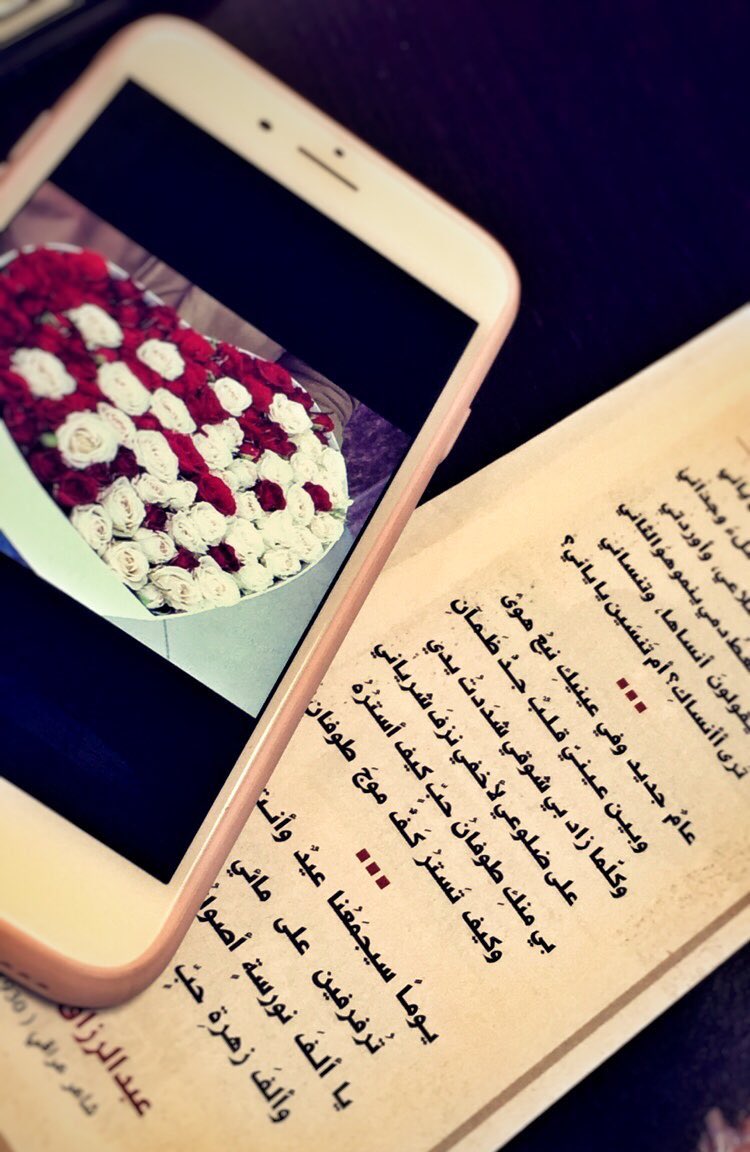 وجداني
وأوردتي
دمي ينمو هو الثاني
يقولون أنساها، وتنساني
ترى أأنساك؟ أم تنسَين يا ياني؟
عامٌ جديد وفي عينيك نبْعُ هوىً
وبين عينيَّ قلبٌ جِدُّ ظمآنِ
وكلما زاد بي شوقي شدَدتُ يدي
على ضلوعي لأُخفي نزفَ شرياني
بي منك طوفانُ حبٍّ كيف أستُرُهُ
وكيف تَستُرُ كفٌّ موجَ طوفان
يوماً سيجمَعُنا عيدٌ وأنت
تُرفرفين على مائي
يا ألفَ نورسةٍ أصوا
وألفَ زهرةِ حبٍّ
عبدالرزاق
شاعر عراقي (1930